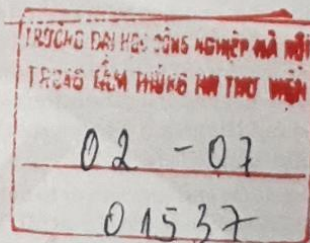 TRƯỜNG ĐẠI HỌC CÔNG NGHIỆP HÀ NỘI
TRUNG TÂM THÔNG TIN THƯ VIỆN
02 - 07
01537